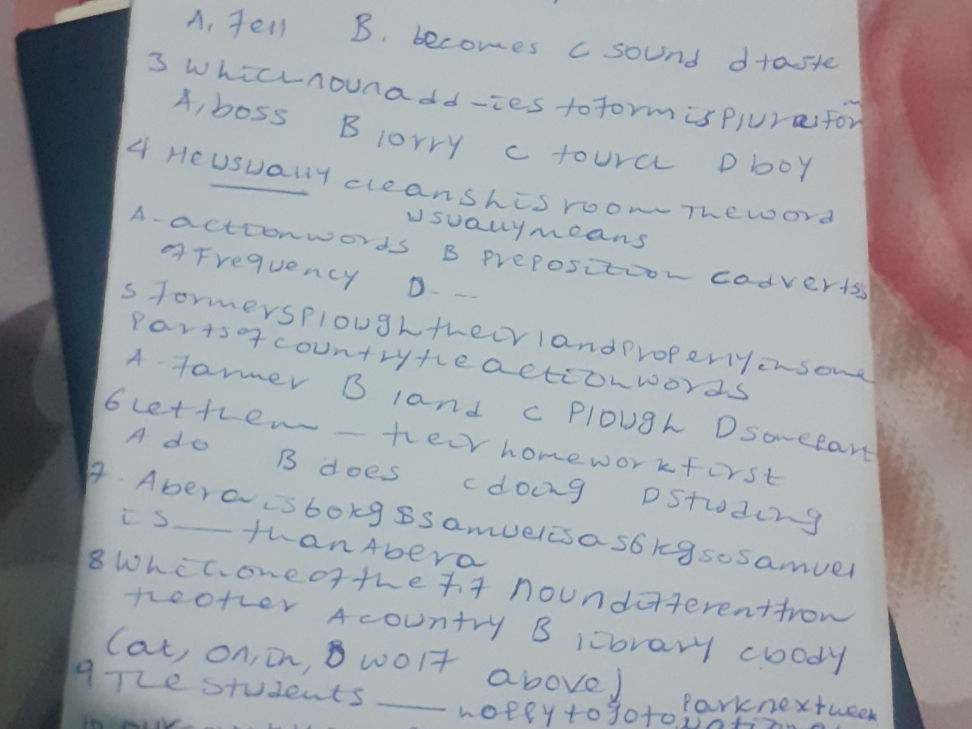 A. Fell B. becomes C sound d taste
3 Which noun add -ies to form is plural for
A, boss B lorry C tourcl D boy
4 He usually cleans his room The word
usually means
A- action words B preposition C adverts
of Frequency D - --
5 formers plough their land properly in some
Parts of country the action words
A- farmer B land C Plough D some part
6 let them — their homework first
A do B does C doing D studing
7. Abera is 60kg Samuel is 56kg so samuel
is — than Abera
8 Which one of the F.F noun different from
the other A country B library C body
(at, on, in, D wolf
above)
9 The students — happy to go to
Park next week